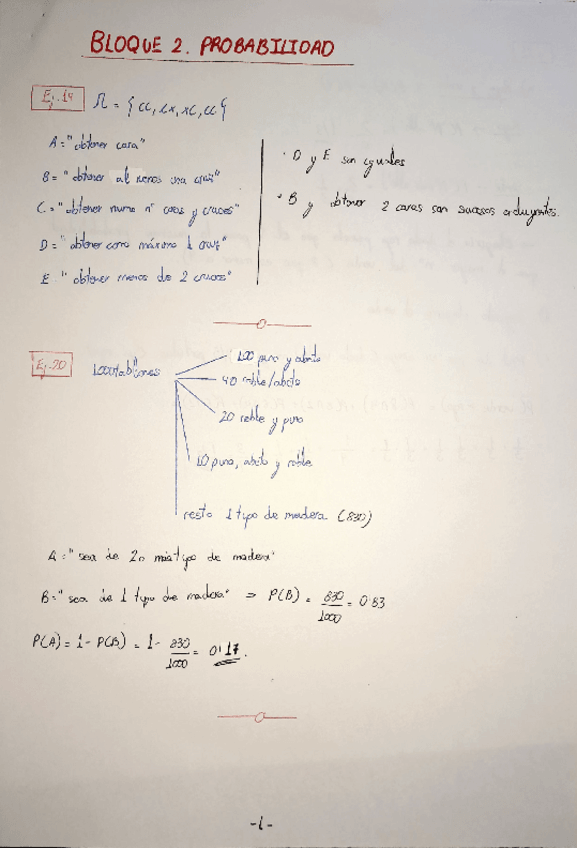 BLOQUE 2. PROBABILIDAD
Ej.19 Ω = { cc, cx, xc, cc }
A = "obtener cara"
B = "obtener al menos una cruz"
C = "obtener mismo nº caras y cruces"
D = "obtener como máximo 1 cruz"
E = "obtener menos de 2 cruces"
· D y E son iguales
· B y obtener 2 caras son sucesos excluyentes.
Ej.20 1000 tablones
100 pino y abeto
40 roble/abeto
20 roble y pino
10 pino, abeto y roble
resto 1 tipo de madera (830)
A = "sea de 2 o más tipo de madera"
B = "sea de 1 tipo de madera" ⇒ P(B) = 830/1000 = 0'83
P(A) = 1 - P(B) = 1 - 830/1000 = 0'17.
-1-